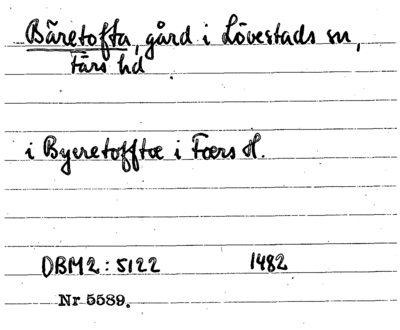 Bäretofta, gård i Lövestads sn,
Färs hd.
i Byeretofftæ i Færs H.
DBM2: 5122 1482
Nr 5589.